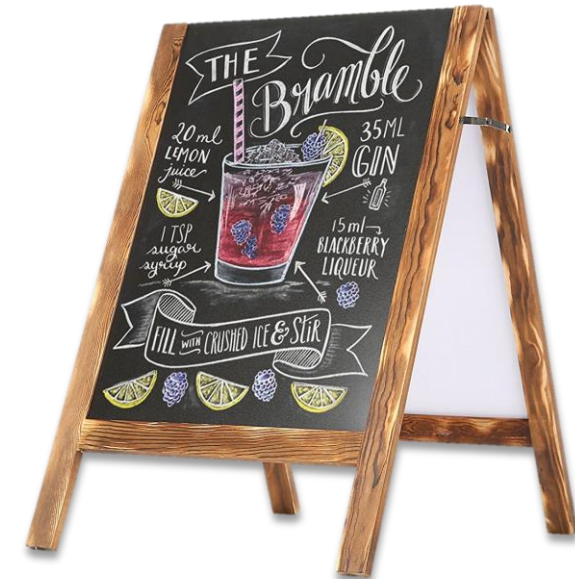 THE
Bramble
20 ml
LEMON
juice
35ML
GIN
1 TSP
sugar
syrup
15 ml
BLACKBERRY
LIQUEUR
FILL WITH CRUSHED ICE & StiR